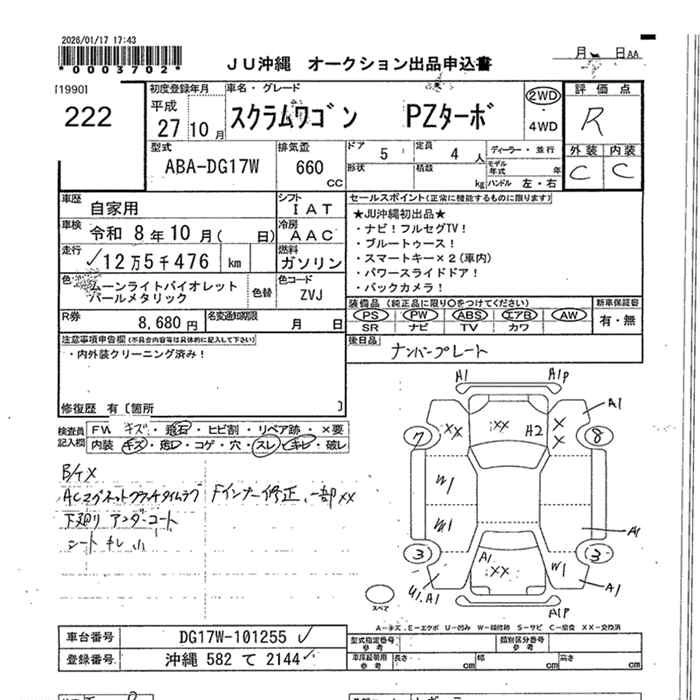 2026/01/17 17:43
*0003702*
JU沖縄 オークション出品申込書
月 日 AA
[1990]
222
初度登録年月
平成
27 10 月
車名・グレード
スクラムワゴン PZターボ
2WD
・
4WD
評価点
R
型式
ABA-DG17W
排気量
660
CC
ドア
5
定員
4 人
ディーラー・並行
モデル年式 年
形状
積載
kg
ハンドル 左・右
外装 内装
C C
車歴
自家用
シフト
IAT
車検
令和 8年10月( 日)
冷房
AAC
走行
✓12万5千476 km
燃料
ガソリン
色
ムーンライトバイオレット
パールメタリック
色替
色コード
ZVJ
R券
8,680 円
名変通知期限
月 日
セールスポイント(正常に機能するものに限ります)
★JU沖縄初出品★
・ナビ!フルセグTV!
・ブルートゥース!
・スマートキー×2(車内)
・パワースライドドア!
・バックカメラ!
装備品(純正品に限り○をつけてください)
PS PW ABS エアB AW
SR ナビ TV カワ
新車保証書
有・無
後日品
ナンバープレート
注意事項申告欄(不具合内容等は具体的に記入して下さい)
・内外装クリーニング済み!
修復歴 有[箇所 ]
検査員
記入欄
FW キズ・飛石・ヒビ割・リペア跡・×要
内装 キズ・・コゲ・穴・スレ・キレ・破レ
B/T X
ACマグネットクラッチタイムラグ Fインナー修正、一部××
下廻り アンダーコート
シート キレ 小
A1 A1P
A1
7 ×× ×× H2 × × 8
W1
W1
A1
3 A1 ×× W1 3
U1.A1 A1
A1P
スペア
A-キズ、E-エクボ U-凹み W-補修跡 S-サビ C-腐食 XX-交換済
車台番号 DG17W-101255 ✓
登録番号 沖縄 582 て 2144 ✓
型式指定番号
参考
類別区分番号
参考
車庫証明用
参考
長さ cm 幅 cm 高さ cm